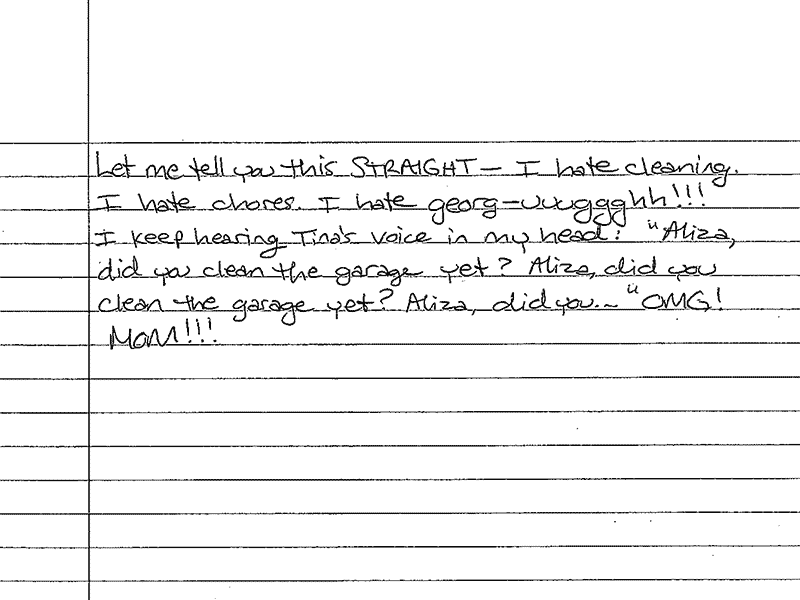 Let me tell you this STRAIGHT— I hate cleaning.
I hate chores. I hate georg—uuuggghh!!!
I keep hearing Tina's voice in my head: "Aliza,
did you clean the garage yet? Aliza, did you
clean the garage yet? Aliza, did you..." OMG!
MOM!!!